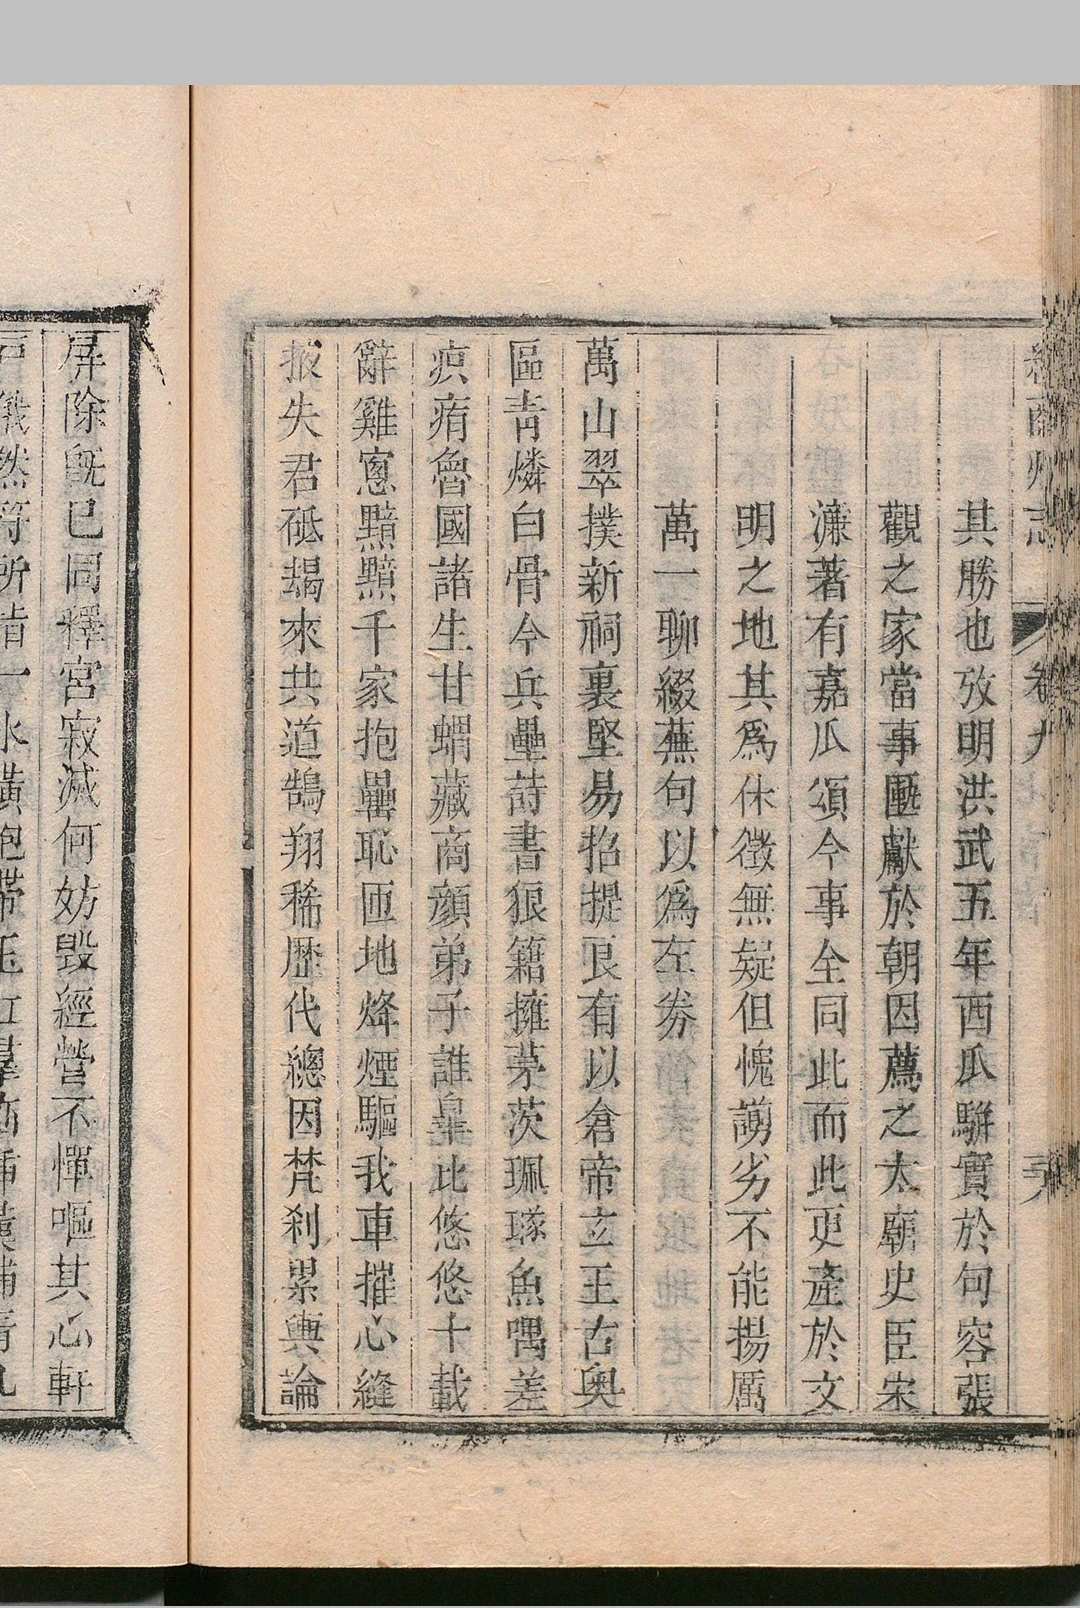 州志
卷九
其勝也攷明洪武五年西瓜駢實於句容張
觀之家當事匭獻於朝因薦之太廟史臣宋
濂著有嘉瓜頌今事全同此而此更產於文
明之地其為休徵無疑但愧謭劣不能揚厲
萬一聊綴蕪句以為左券
萬山翠撲新祠裏堅易招提良有以倉帝玄王古奧
區青燐白骨今兵壘詩書狼籍擁茅茨珮璲魚喁差
疻痏魯國諸生甘蝟藏商顏弟子誰皐比悠悠十載
辭雞窻黯黯千家抱罍恥匝地烽煙驅我車摧心縫
掖失君砥朅來共道鵠翔稀歷代總因梵剎累輿論
屏除旣已同釋宮寂滅何妨毀經營不憚嘔其心軒